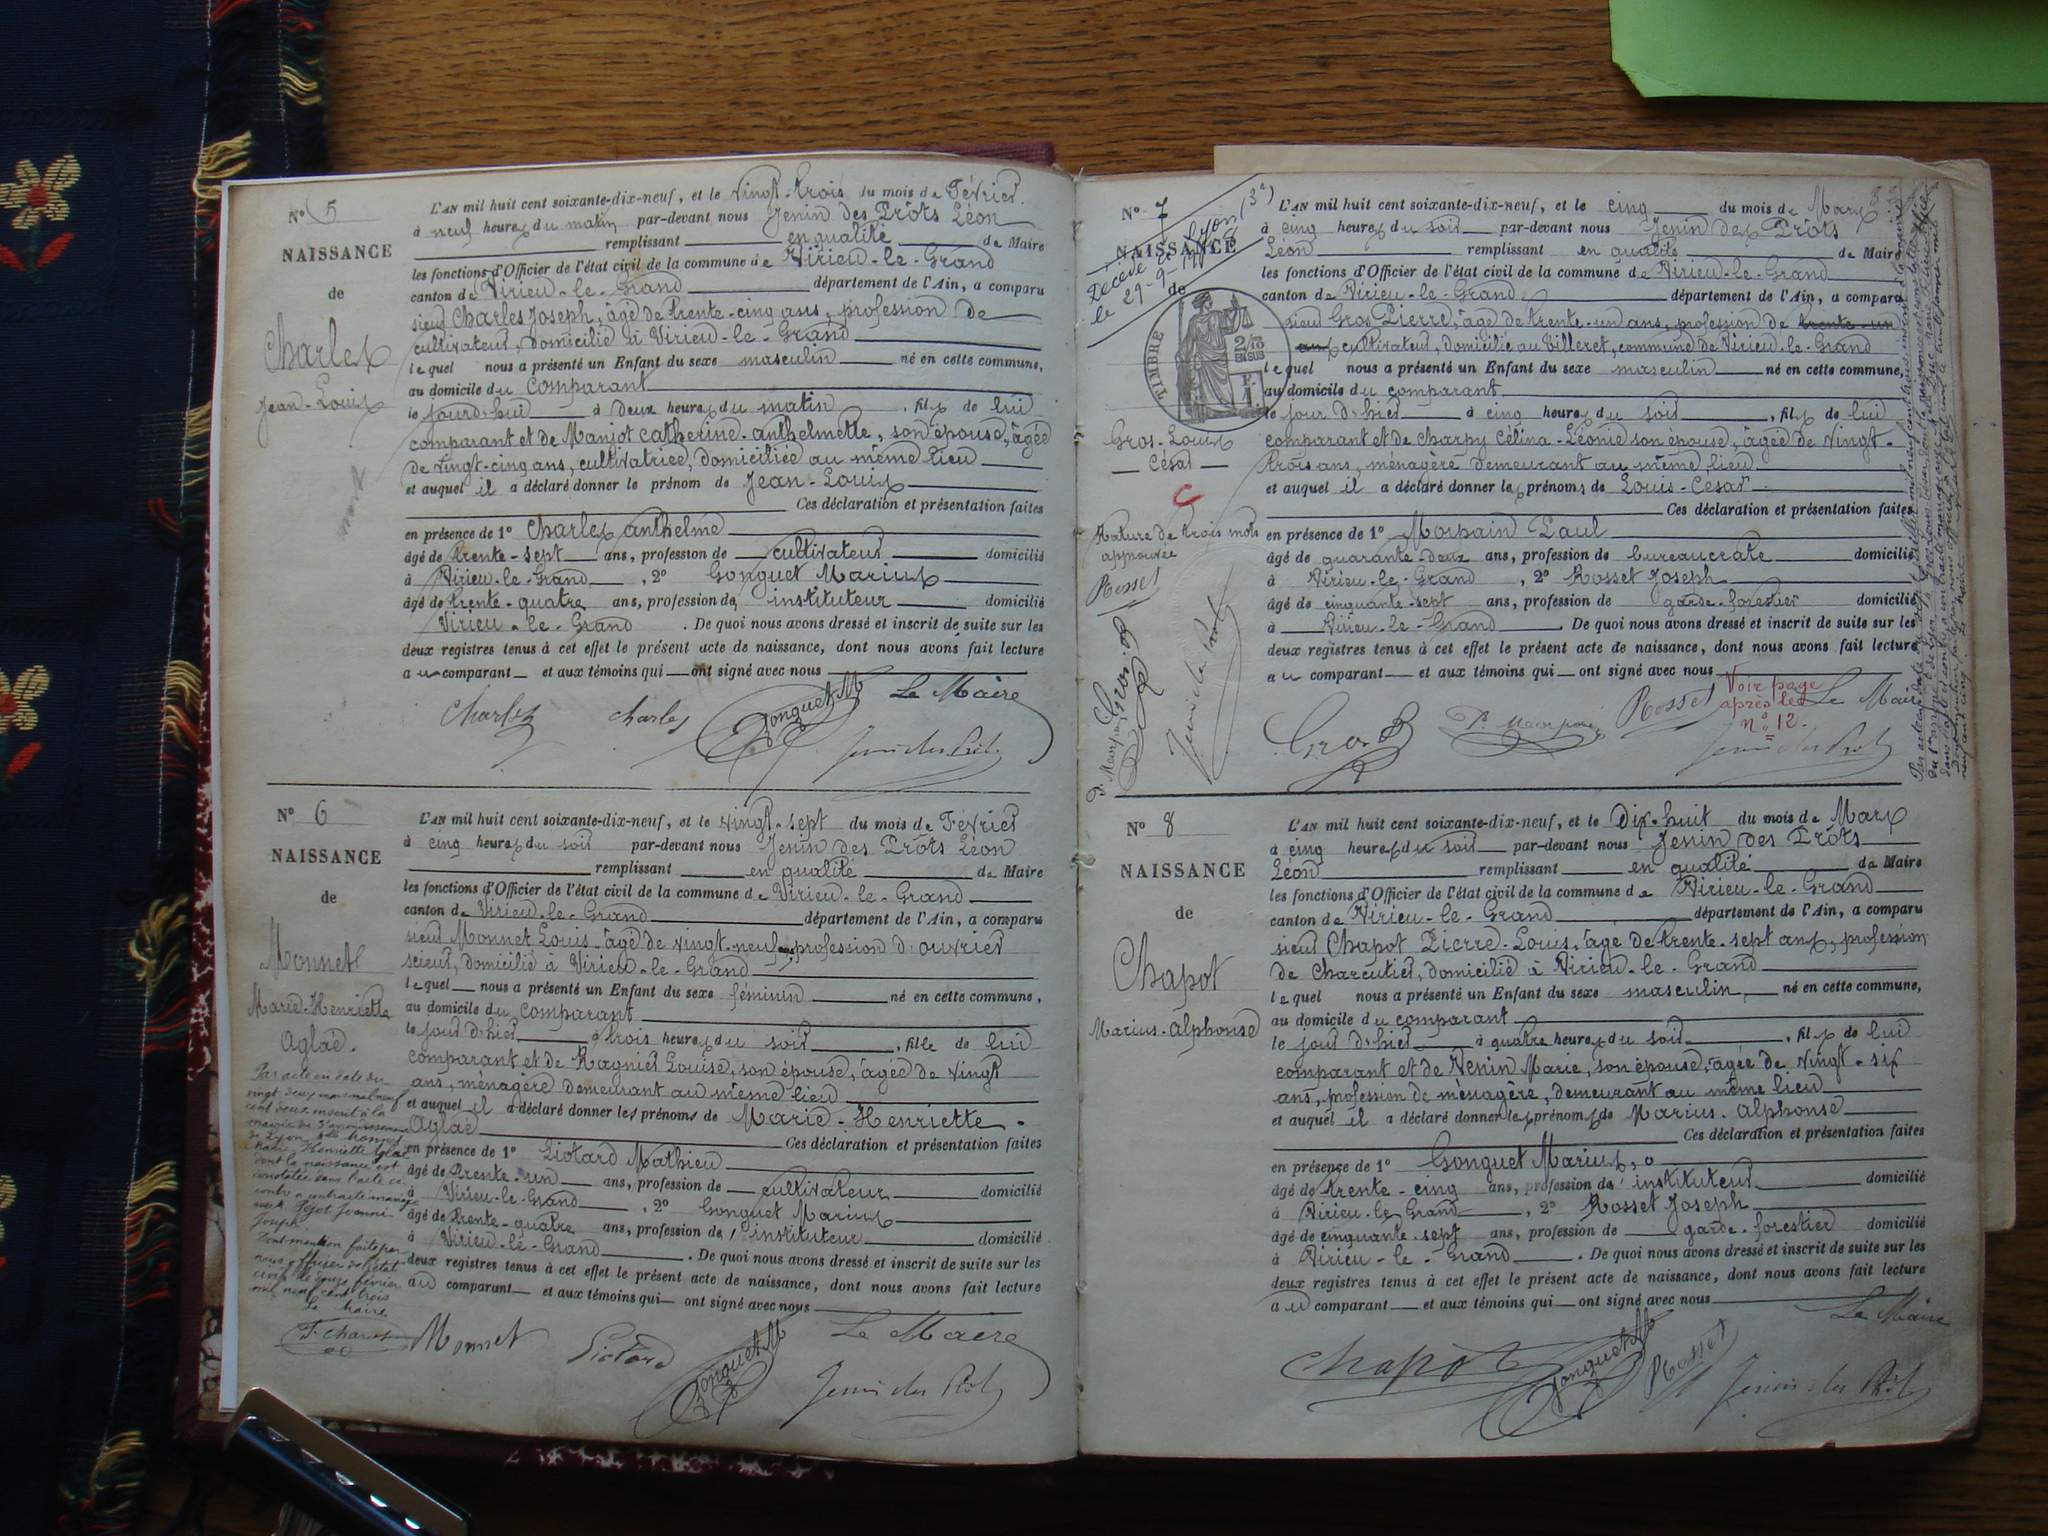 N° 5
NAISSANCE
de
Charles
Jean-Louis
L'AN mil huit cent soixante-dix-neuf, et le vingt-trois du mois de Février
à neuf heures du matin par-devant nous Jenin des Prôts Léon
remplissant en qualité de Maire
les fonctions d'Officier de l'état civil de la commune de Virieu-le-Grand
canton de Virieu-le-Grand département de l'Ain, a comparu
sieur Charles Joseph, âgé de trente-cinq ans, profession de
cultivateur, domicilié à Virieu-le-Grand
lequel nous a présenté un Enfant du sexe masculin né en cette commune,
au domicile du comparant
le jourd'hui à deux heures du matin, fils de lui
comparant et de Manjot Catherine-Anthelmette, son épouse, âgée
de vingt-cinq ans, cultivatrice, domiciliée au même lieu
et auquel il a déclaré donner le prénom de Jean-Louis
Ces déclaration et présentation faites
en présence de 1° Charles Anthelme
âgé de trente-sept ans, profession de cultivateur domicilié
à Virieu-le-Grand, 2° Gonguet Marius
âgé de trente-quatre ans, profession de instituteur domicilié
Virieu-le-Grand. De quoi nous avons dressé et inscrit de suite sur les
deux registres tenus à cet effet le présent acte de naissance, dont nous avons fait lecture
au comparant et aux témoins qui ont signé avec nous
Charles charles Gonguet M Le Maire
Jenin des Prôts
N° 6
NAISSANCE
de
Monnet
Marie-Henriette
Aglaé.
Par acte en date du
vingt deux mars mil neuf
cent deux inscrit à la
mairie du 3e arrondissement
de Lyon, Mlle Monnet
Marie-Henriette Aglaé
dont la naissance est
constatée dans l'acte ci
contre a contracté mariage
avec Joanni
Joseph
Dont mention faite par
nous officier de l'état
civil le douze février
mil neuf cent trois
Le Maire
L'AN mil huit cent soixante-dix-neuf, et le vingt-sept du mois de Février
à cinq heures du soir par-devant nous Jenin des Prôts Léon
remplissant en qualité de Maire
les fonctions d'Officier de l'état civil de la commune de Virieu-le-Grand
canton de Virieu-le-Grand département de l'Ain, a comparu
sieur Monnet Louis âgé de vingt-neuf ans, profession d'ouvrier
scieur, domicilié à Virieu-le-Grand
lequel nous a présenté un Enfant du sexe féminin né en cette commune,
au domicile du comparant
le jour d'hier à trois heures du soir, fille de lui
comparant et de Ragnier Louise, son épouse, âgée de vingt
ans, ménagère demeurant au même lieu
et auquel il a déclaré donner les prénoms de Marie-Henriette-
Aglaé Ces déclaration et présentation faites
en présence de 1° Liotard Mathieu
âgé de trente-un ans, profession de cultivateur domicilié
à Virieu-le-Grand, 2° Gonguet Marius
âgé de trente-quatre ans, profession de l'instituteur domicilié
à Virieu-le-Grand. De quoi nous avons dressé et inscrit de suite sur les
deux registres tenus à cet effet le présent acte de naissance, dont nous avons fait lecture
au comparant et aux témoins qui ont signé avec nous
Monnet Liotard Gonguet M Le Maire
Jenin des Prôts
N° 7
NAISSANCE
de
Décédé à Lyon (3e)
le 29-9-19
TIMBRE
2/10
EN SUS
Gros-Louis
César
C
Rature de trois mots
approuvée
Rosset
Gros P
Jenin des Prôts
L'AN mil huit cent soixante-dix-neuf, et le cinq du mois de Mars
à cinq heures du soir par-devant nous Jenin des Prôts
Léon remplissant en qualité de Maire
les fonctions d'Officier de l'état civil de la commune de Virieu-le-Grand
canton de Virieu-le-Grand département de l'Ain, a comparu
sieur Gros Pierre, âgé de trente-un ans, profession de trente-un
ans cultivateur, domicilié au Villeret, commune de Virieu-le-Grand
lequel nous a présenté un Enfant du sexe masculin né en cette commune,
au domicile du comparant
le jour d'hier à cinq heures du soir, fils de lui
comparant et de Charpy Célina-Léonie son épouse, âgée de vingt-
trois ans, ménagère demeurant au même lieu
et auquel il a déclaré donner les prénoms de Louis-César.
Ces déclaration et présentation faites
en présence de 1° Morpain Paul
âgé de quarante-deux ans, profession de bureaucrate domicilié
à Virieu-le-Grand, 2° Rosset Joseph
âgé de cinquante-sept ans, profession de garde-forestier domicilié
à Virieu-le-Grand. De quoi nous avons dressé et inscrit de suite sur les
deux registres tenus à cet effet le présent acte de naissance, dont nous avons fait lecture
au comparant et aux témoins qui ont signé avec nous
Gros P P. Morpain Rosset Le Maire
Voir page
après le
n° 12.
Jenin des Prôts
N° 8
NAISSANCE
de
Chapot
Marius-Alphonse
L'AN mil huit cent soixante-dix-neuf, et le Dix-huit du mois de Mars
à cinq heures du soir par-devant nous Jenin des Prôts
Léon remplissant en qualité de Maire
les fonctions d'Officier de l'état civil de la commune de Virieu-le-Grand
canton de Virieu-le-Grand département de l'Ain, a comparu
sieur Chapot Pierre-Louis, âgé de trente-sept ans, profession
de charcutier, domicilié à Virieu-le-Grand
lequel nous a présenté un Enfant du sexe masculin, né en cette commune,
au domicile du comparant
le jour d'hier à quatre heures du soir, fils de lui
comparant et de Nenin Marie, son épouse, âgée de vingt-six
ans, profession de ménagère, demeurant au même lieu
et auquel il a déclaré donner les prénoms de Marius-Alphonse
Ces déclaration et présentation faites
en présence de 1° Gonguet Marius,
âgé de trente-cinq ans, profession de l'instituteur domicilié
à Virieu-le-Grand, 2° Rosset Joseph
âgé de cinquante-sept ans, profession de garde-forestier domicilié
à Virieu-le-Grand. De quoi nous avons dressé et inscrit de suite sur les
deux registres tenus à cet effet le présent acte de naissance, dont nous avons fait lecture
au comparant et aux témoins qui ont signé avec nous
Le Maire
Chapot Gonguet M Rosset Jenin des Prôts